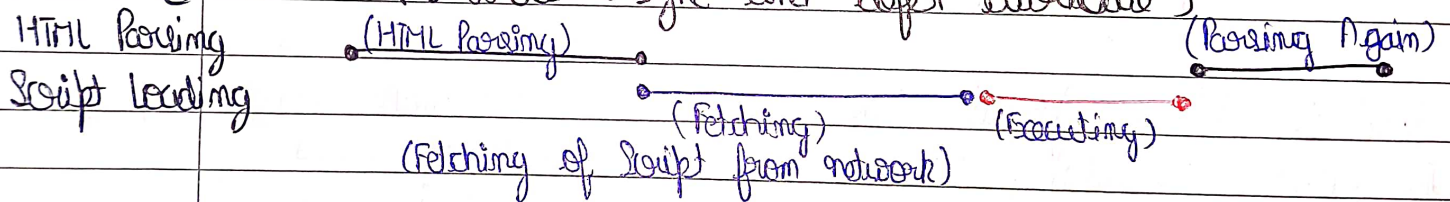 HTML Parsing (HTML Parsing) (Parsing Again)
Script Loading
(Fetching) (Executing)
(Fetching of Script from network)